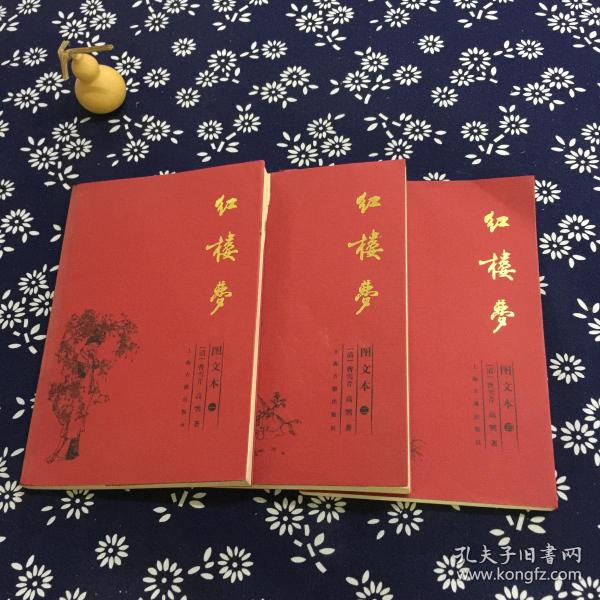 红楼梦
图文本 一
〔清〕曹雪芹 高鹗 著
上海古籍出版社
红楼梦
图文本 二
〔清〕曹雪芹 高鹗 著
上海古籍出版社
红楼梦
图文本 三
〔清〕曹雪芹 高鹗 著
上海古籍出版社
孔夫子旧书网
www.kongfz.com